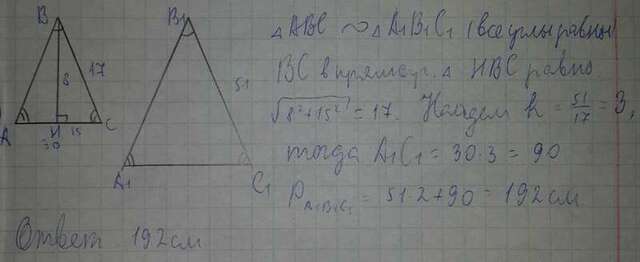 B
8
17
A
H
15
C
=30
B₁
51
A₁
C₁
△ABC ∼ △A₁B₁C₁ (все углы равны)
BC в прямоуг. △ HBC равно
√8²+15² = 17. Найдем k = 51/17 = 3,
тогда A₁C₁ = 30·3 = 90
P A₁B₁C₁ = 51·2+90 = 192 см
Ответ 192 см